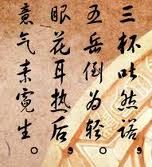 三杯吐然诺，
五岳倒为轻。
眼花耳热后，
意气素霓生。